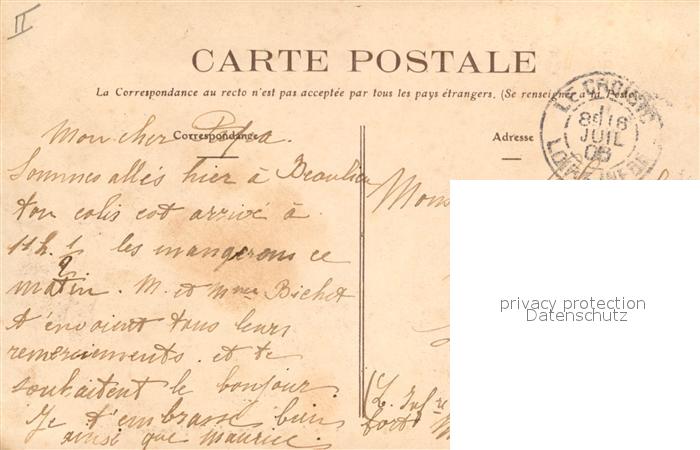 II
CARTE POSTALE
La Correspondance au recto n'est pas acceptée par tous les pays étrangers. (Se renseigner à la Poste)
Correspondance
Adresse
LE CROISIC
8 16
JUIL
08
Mon cher Papa.
Sommes allés hier à Beaulieu
ton colis est arrivé à
11h. les mangerons ce
matin. M. et Mme Bichet
t'envoient tous leurs
remerciements. et te
souhaitent le bonjour.
Je t'embrasse bien
ainsi que Maurice.
Mons
(L. Infre
privacy protection
Datenschutz